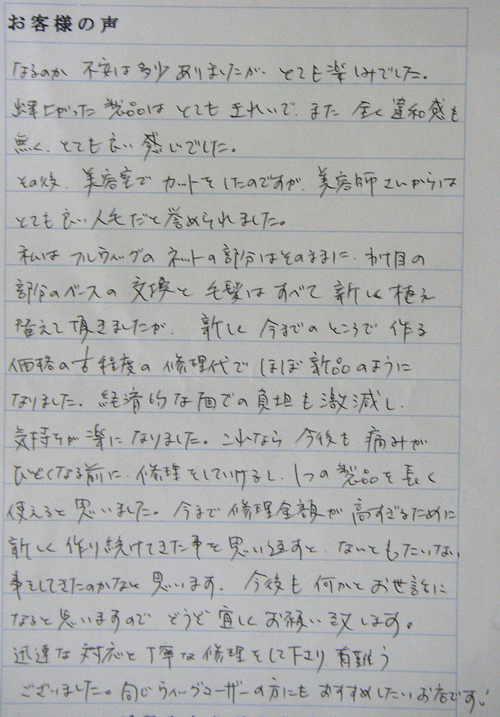 お客様の声
なるのか 不安は多少ありましたが、とても楽しみでした。
出来上がった 製品は とても きれいで、また 全く違和感も
無く、とても良い 感じでした。
その後、美容室で カットをしたのですが、美容師さんからは
とても良い人毛だと誉められました。
私は フルウィッグの ネットの部分はそのままに、分け目の
部分のベースの 交換と 毛髪は すべて 新しく植え
替えて頂きましたが、 新しく 今までの ところで 作る
価格の 程度の 修理代で ほぼ新品のように
なりました。経済的な面での負担も激減し、
気持ちが楽になりました。これなら 今後も、痛みが
ひどくなる前に、修理をしていけるし、1つの 製品を 長く
使えると 思いました。今まで 修理金額が 高すぎるために
新しく 作り続けてきた事を思い返すと、なんともったいない
事をしてきたのかなと 思います。 今後も 何かと お世話に
なると思いますので どうぞ 宜しく お願い致します。
迅速な 対応と 丁寧な修理をして下さり 有難う
ございました。同じウィッグユーザーの方にも おすすめしたいお店です。